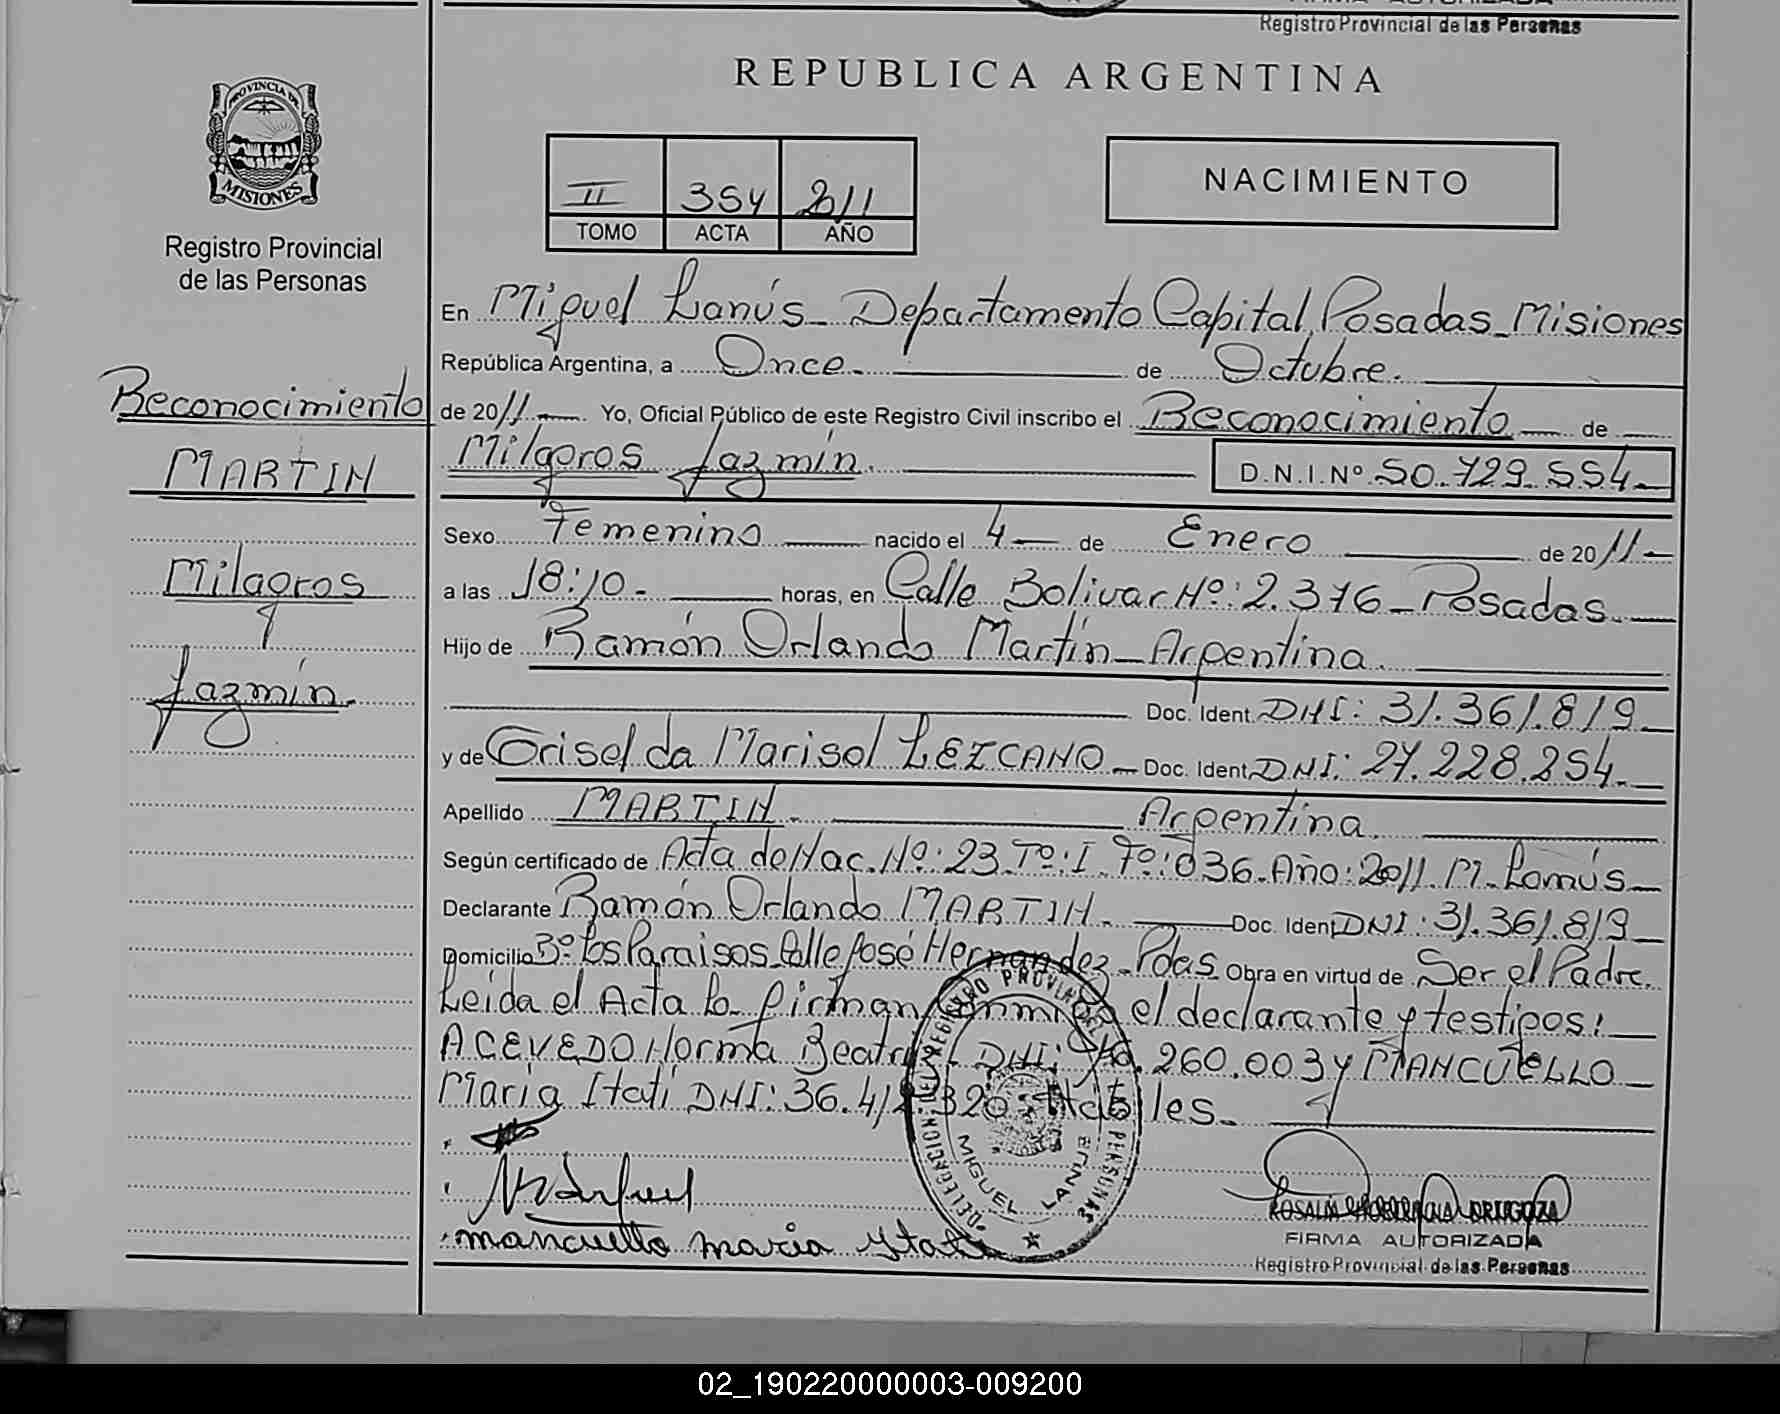 Registro Provincial de las Personas
REPUBLICA ARGENTINA
PROVINCIA DE
MISIONES
Registro Provincial
de las Personas
II 354 2011
TOMO ACTA AÑO
NACIMIENTO
En Miguel Lanús - Departamento Capital, Posadas - Misiones
República Argentina, a Once. de Octubre.
Reconocimiento
de 2011. Yo, Oficial Público de este Registro Civil inscribo el Reconocimiento de
MARTIN
Milagros Jazmín. D.N.I.Nº 50.729.554
Sexo Femenino nacido el 4 de Enero de 2011
Milagros
a las 18:10 horas, en Calle Bolivar Nº: 2.376 - Posadas.
Hijo de Ramón Orlando Martín - Argentina.
Jazmín.
Doc. Ident. DNI: 31.361.819
y de Griselda Marisol LEZCANO - Doc. Ident. DNI: 27.228.254
Apellido MARTIN. Argentina.
Según certificado de Acta de Nac. Nº: 23. Tº: I. Fº: 036. Año: 2011. M. Lanús
Declarante Ramón Orlando MARTIN. Doc. Iden DNI: 31.361.819
Domicilio Bº Los Paraisos. Calle José Hernandez. Pdas Obra en virtud de Ser el Padre.
Leída el Acta la firman conmigo el declarante y testigos:
ACEVEDO Norma Beatriz DNI: .260.003 y MANCUELLO
María Itatí DNI: 36.41 .320 Hábiles.
DELEGACION DEL REGISTRO PROVINCIAL DE LAS PERSONAS
MIGUEL LANUS
mancuello maria ytati
FIRMA AUTORIZADA
Registro Provincial de las Personas
02_190220000003-009200